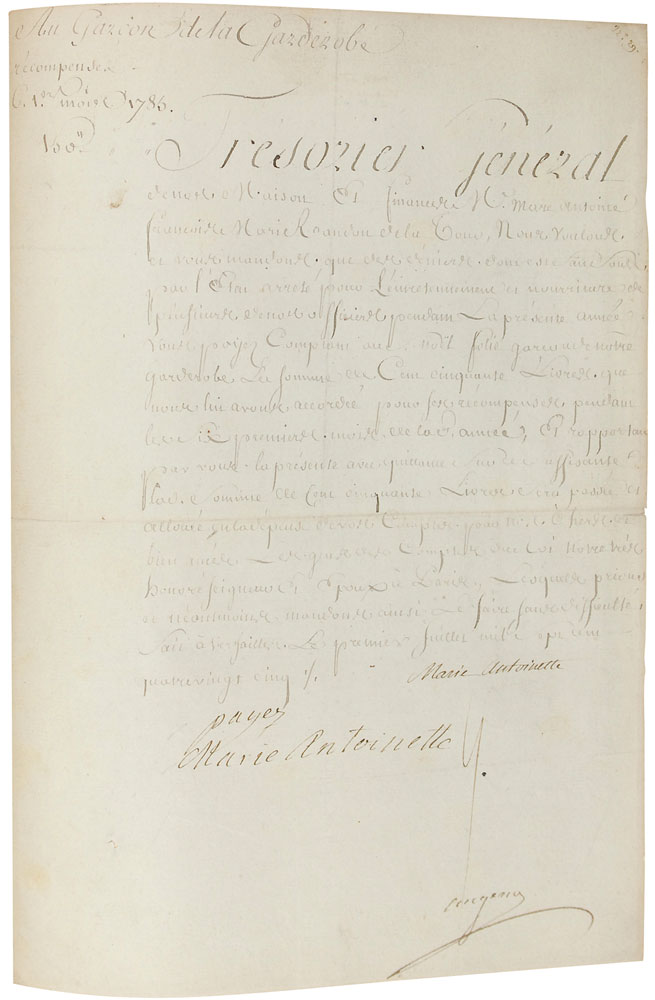 Au Garçon de la Garderobe
récompenses
6. 1ers mois 1785.
150ll
Trésorier Général
de notre Maison Et finances Me. Marc Antoine
françois Marie Randon de la Tour, Nous voulons
et vous mandons que des deniers
par l'Etat arrêté pour L'entretennement et nourriture de
plusieurs de nos officiers pendant La présente année
vous payez Comptant au S. Noël folié garçon de notre
garderobe La somme de Cent cinquante Livres que
nous lui avons accordé pour ses récompenses pendant
les six premiers mois de lad. année, Et rapportant
par vous la présente avec quittance sur ce suffisante
lad. somme de Cent cinquante Livres sera passée et
allouée en la dépense de vos Comptes par nos chers et
bien amés Les gens des Comptes du Roi Notre très
honoré seigneur et Epoux à Paris, Lesquels prions
et néanmoins mandons ainsi Le faire sans difficulté
fait à Versailles Le premier Juillet mil sept cent
quatrevingt cinq ./.
Marie Antoinette
payez
Marie Antoinette